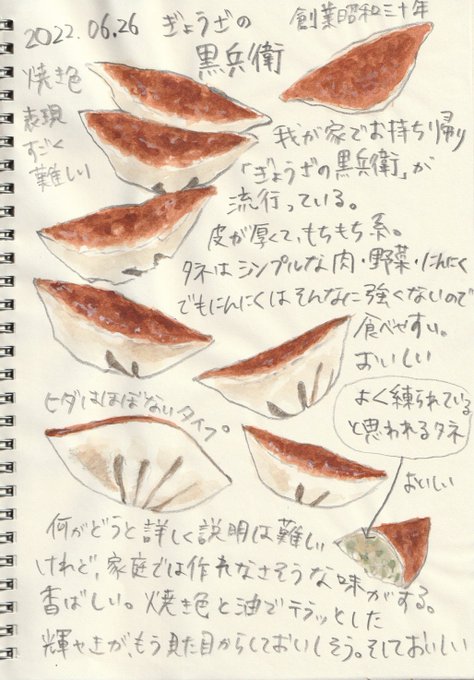 2022.06.26
ぎょうざの
黒兵衛
創業昭和三十年
焼き色
表現
すごく
難しい
我が家でお持ち帰り
「ぎょうざの黒兵衛」が
流行っている。
皮が厚くて、もちもち系。
タネはシンプルな肉・野菜・にんにく
でもにんにくはそんなに強くないので
食べやすい。
おいしい
ヒダはほぼないタイプ
よく練られている
と思われるタネ
おいしい
何がどうと詳しく説明は難しい
けれど、家庭では作れなさそうな味がする。
香ばしい。焼き色と油でテラッとした
輝やきが、もう見た目からしておいしそう。そしておいしい